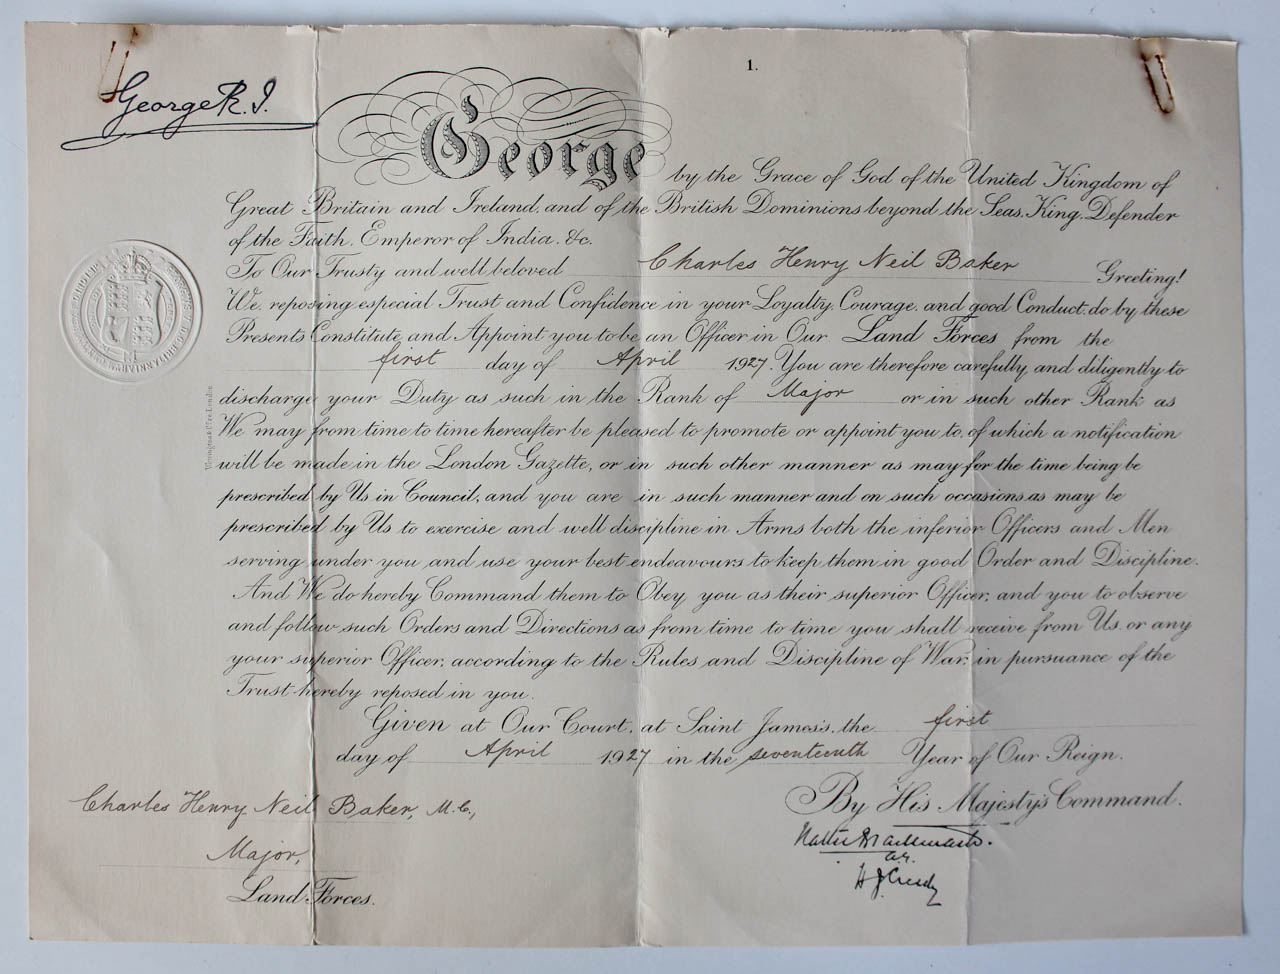 1.
George R. I.
George
by the Grace of God of the United Kingdom of
Great Britain and Ireland, and of the British Dominions beyond the Seas, King, Defender
of the Faith, Emperor of India, &c.
To Our Trusty and well beloved Charles Henry Neil Baker Greeting!
We, reposing especial Trust and Confidence in your Loyalty, Courage, and good Conduct, do by these
Presents Constitute and Appoint you to be an Officer in Our Land Forces from the
first day of April 1927. You are therefore carefully and diligently to
discharge your Duty as such in the Rank of Major or in such other Rank as
We may from time to time hereafter be pleased to promote or appoint you to, of which a notification
will be made in the London Gazette, or in such other manner as may for the time being be
prescribed by Us in Council, and you are in such manner and on such occasions as may be
prescribed by Us to exercise and well discipline in Arms both the inferior Officers and Men
serving under you and use your best endeavours to keep them in good Order and Discipline.
And We do hereby Command them to Obey you as their superior Officer, and you to observe
and follow such Orders and Directions as from time to time you shall receive from Us, or any
your superior Officer, according to the Rules and Discipline of War, in pursuance of the
Trust hereby reposed in you.
Given at Our Court, at Saint James's, the first
day of April 1927 in the seventeenth Year of Our Reign.
By His Majesty's Command.
Charles Henry Neil Baker, M.C.,
Major,
Land Forces.
H J Creedy